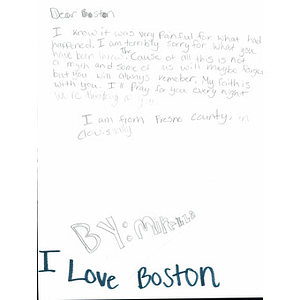 Dear Boston
I know it was very painful for what had
happened. I am terribly sorry for what you
have been 'Cause of all this is not
a myth and some of us will maybe forget
but you will always remeber. My faith is
with you. I'll Pray for you every night
I am from Fresno County, in
BY:
I Love Boston